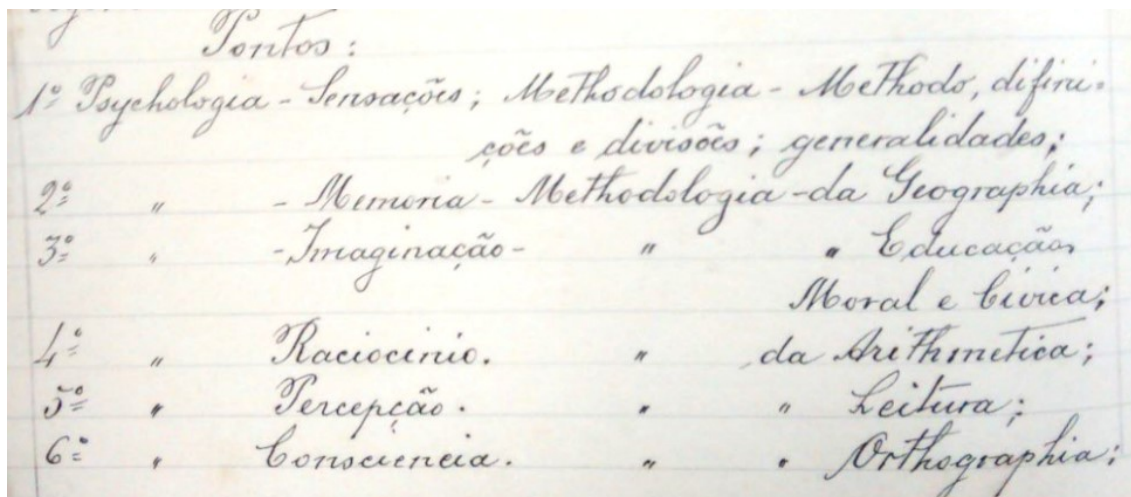 Pontos:
1º Psychologia - Sensações; Methodologia - Methodo, difini-
ções e divisões; generalidades;
2º " - Memoria - Methodologia - da Geographia;
3º " - Imaginação - " " Educação
Moral e Civica;
4º " Raciocinio. " da Arithmetica;
5º " Percepção. " " Leitura;
6º " Consciencia. " " Orthographia;